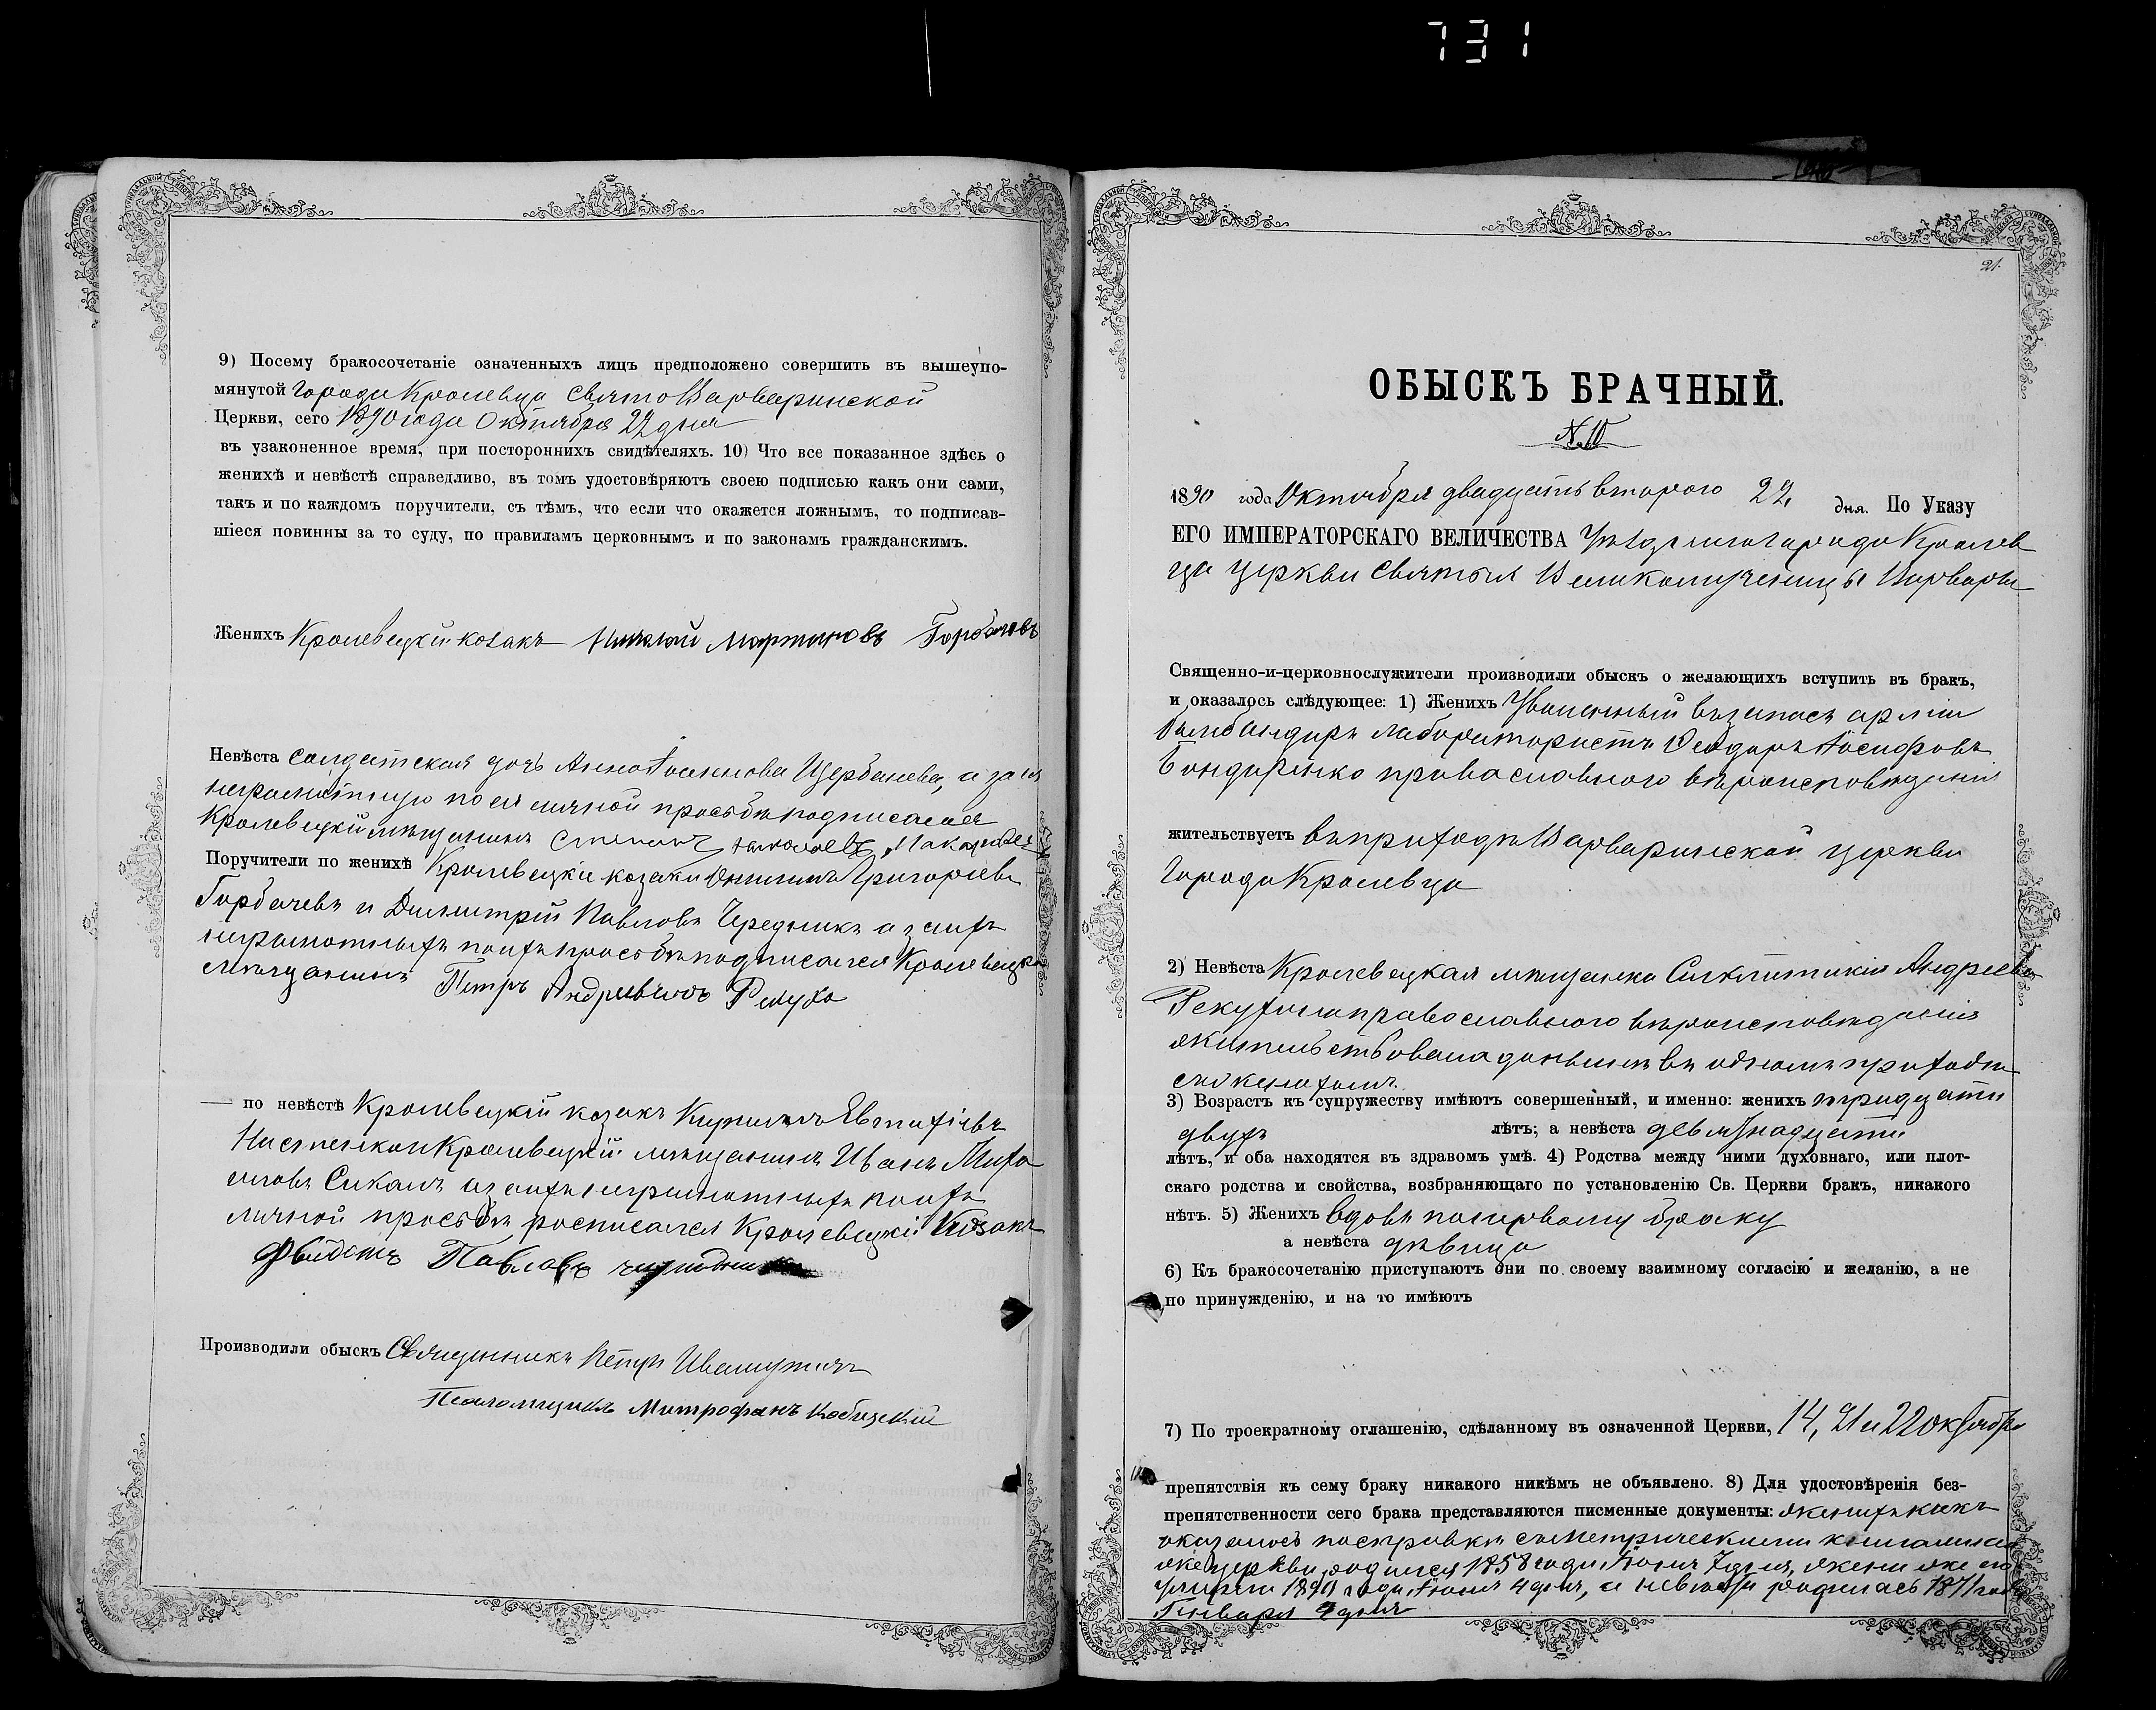 731
9) Посему бракосочетаніе означенныхъ лицъ предположено совершить въ вышеупо-
мянутой города Кролевца Свято Варваринской
Церкви, сего 1890 года Октября 22 дня
въ узаконенное время, при постороннихъ свидѣтеляхъ. 10) Что все показанное здѣсь о
женихѣ и невѣстѣ справедливо, въ томъ удостовѣряютъ своею подписью какъ они сами,
такъ и по каждомъ поручители, съ тѣмъ, что если что окажется ложнымъ, то подписав-
шіеся повинны за то суду, по правиламъ церковнымъ и по законамъ гражданскимъ.
Женихъ Кролевецкій козакъ Николай Мартиновъ Горбачовъ
Невѣста солдатская дочь Анна Іоаннова Щербачева, а за ея
неграмотную по ея личной просьбѣ подписался
Кролевецкій мѣщанинъ Степанъ
Поручители по женихѣ Кролевецкіе козаки Онисимъ Григорьевъ
Горбачевъ и Димитрій Павловъ Чередникъ а за ихъ
неграмотныхъ по ихъ просьбѣ подписался Кролевецкій
мѣщанинъ Петръ Андрѣевичъ
по невѣстѣ Кролевецкій козакъ Кириллъ
Кролевецкій мѣщанинъ Иванъ Миха
иловъ Сикачъ а за ихъ неграмотныхъ по ихъ
личной просьбѣ росписался Кролевецкій Козакъ
Павловъ
Производили обыскъ Священникъ Петръ
Псаломщикъ Митрофанъ Кобицскій
21.
ОБЫСКЪ БРАЧНЫЙ.
№ 10
1890 года Октября двадцать второго 22 дня. По Указу
ЕГО ИМПЕРАТОРСКАГО ВЕЛИЧЕСТВА Уѣзднаго города Кролев
ца церкви Святыя Великомученицы Варвары
Священно-и-церковнослужители производили обыскъ о желающихъ вступить въ бракъ,
и оказалось слѣдующее: 1) Женихъ Уволенный въ запасъ арміи
бомбандиръ лаборатористъ Ѳеодоръ Іосифовъ
Бондаренко православнаго вѣроисповѣданія
жительствуетъ въ приходѣ Варваринской церкви
города Кролевца
2) Невѣста Кролевецкая мѣщанка Синклитикія Андреева
православнаго вѣроисповѣданія
жительствовала донынѣ въ одномъ приходѣ
съ женихомъ.
3) Возрастъ къ супружеству имѣютъ совершенный, и именно: женихъ тридцати
двухъ лѣтъ; а невѣста девятнадцати
лѣтъ, и оба находятся въ здравомъ умѣ. 4) Родства между ними духовнаго, или плот-
скаго родства и свойства, возбраняющаго по установленію Св. Церкви бракъ, никакого
нѣтъ. 5) Женихъ вдовъ по первому браку
а невѣста дѣвица
6) Къ бракосочетанію приступаютъ они по своему взаимному согласію и желанію, а не
по принужденію, и на то имѣютъ
7) По троекратному оглашенію, сдѣланному въ означенной Церкви, 14, 21 и 22 октября
препятствія къ сему браку никакого никѣмъ не объявлено. 8) Для удостовѣренія без-
препятственности сего брака представляются писменные документы: женихъ какъ
оказалось по справкѣ съ метрическими книгами сей
же церкви родился 1858 года Іюня 7 дня, жена же его
умерла 1890 года Іюня 4 дня, а невѣста родилась 1871 года
Генваря 4 дня